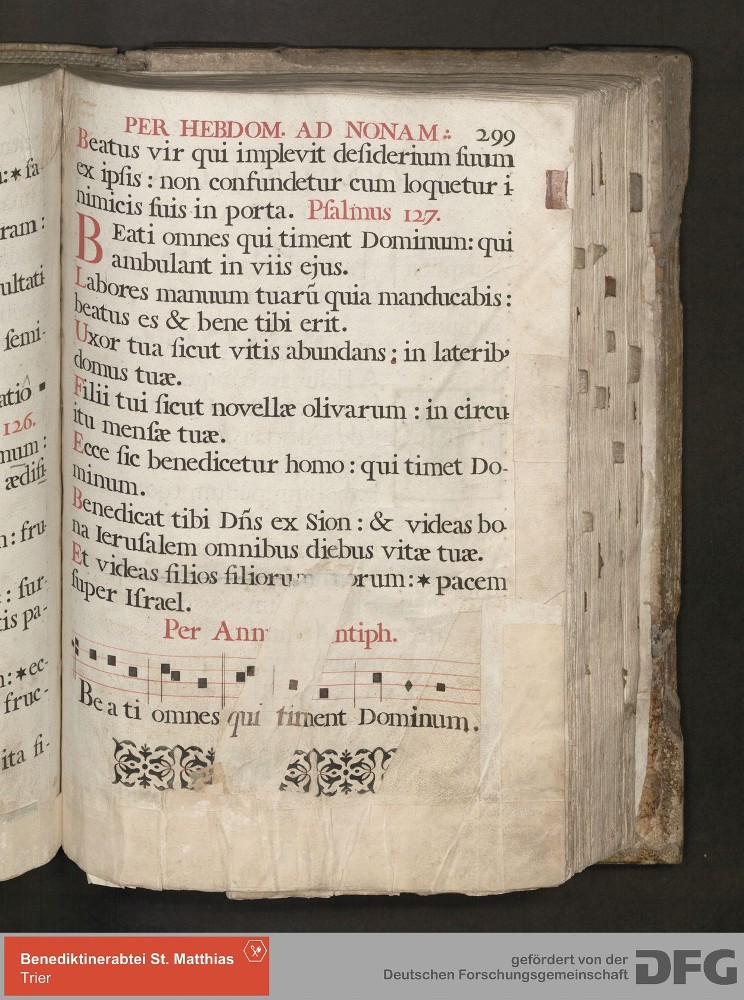 PER HEBDOM. AD NONAM ⁖ 299
Beatus vir qui implevit deſiderium ſuum
ex ipſis : non confundetur cum loquetur i-
nimicis ſuis in porta. Pſalmus 127.
BEati omnes qui timent Dominum: qui
ambulant in viis ejus.
Labores manuum tuarũ quia manducabis :
beatus es & bene tibi erit.
Uxor tua ſicut vitis abundans ; in laterib⹎
domus tuæ.
Filii tui ſicut novellæ olivarum : in circu
itu menſæ tuæ.
Ecce ſic benedicetur homo : qui timet Do-
minum.
Benedicat tibi Dn̄s ex Sion : & videas bo
na Ieruſalem omnibus diebus vitæ tuæ.
Et videas filios filioru orum : ✶ pacem
ſuper Iſrael.
Per Ann ntiph.
Be a ti omnes qui timent Dominum.
: ✶ fa-
ram :
ultati
ſemi-
atiô
126.
num :
ædiſi-
n : fru
: ſur-
tis pa-
: ✶ ec-
fruc-
ita fi-
Benediktinerabtei St. Matthias
Trier
gefördert von der
Deutschen Forschungsgemeinschaft
DFG